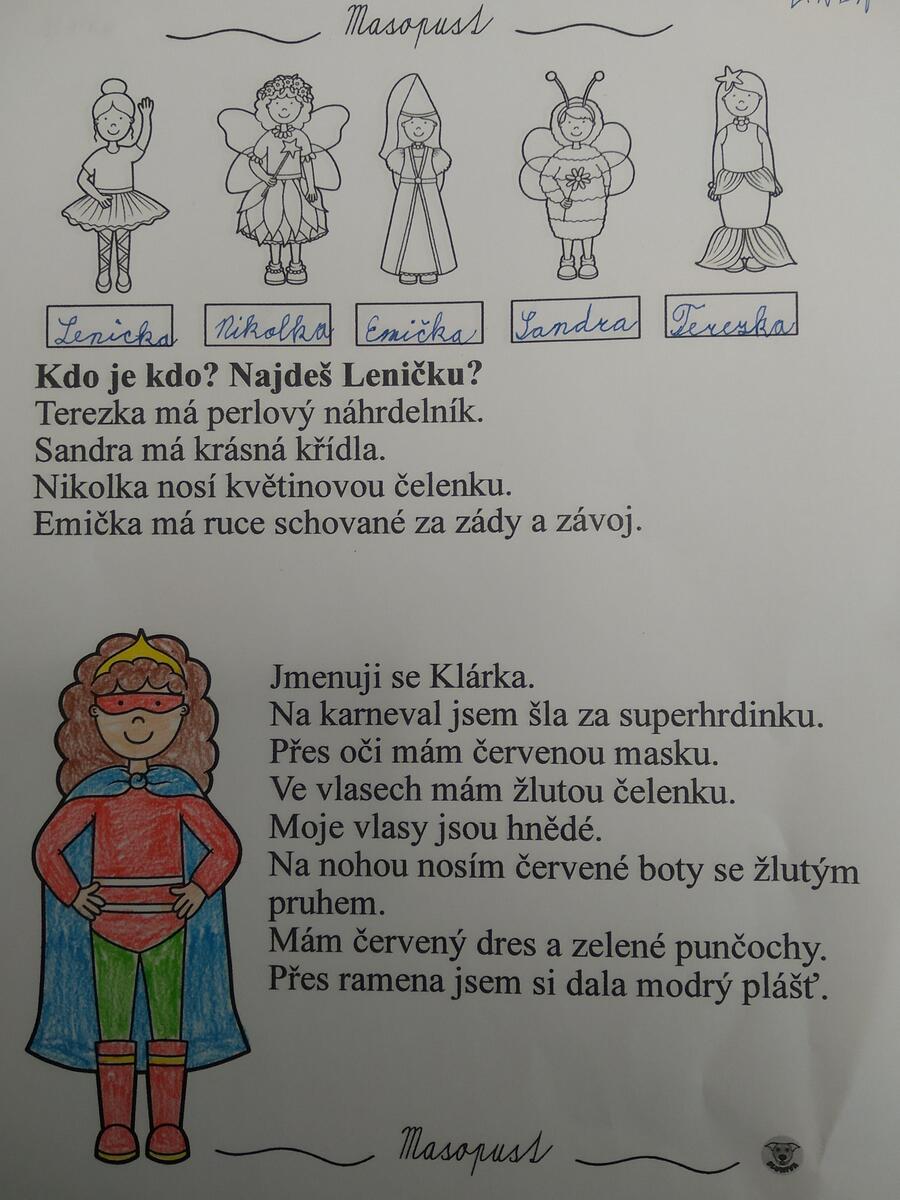 Masopust
Lenicka Nikolka Emička Sandra Terezka
Kdo je kdo? Najdeš Leničku?
Terezka má perlový náhrdelník.
Sandra má krásná křídla.
Nikolka nosí květinovou čelenku.
Emička má ruce schované za zády a závoj.
Jmenuji se Klárka.
Na karneval jsem šla za superhrdinku.
Přes oči mám červenou masku.
Ve vlasech mám žlutou čelenku.
Moje vlasy jsou hnědé.
Na nohou nosím červené boty se žlutým
pruhem.
Mám červený dres a zelené punčochy.
Přes ramena jsem si dala modrý plášť.
Masopust